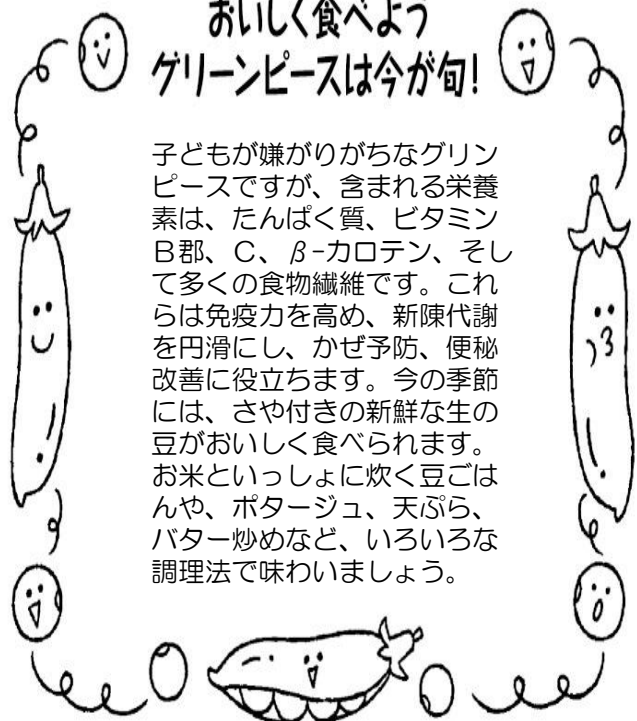 おいしく食べよう
グリーンピースは今が旬!
子どもが嫌がりがちなグリン
ピースですが、含まれる栄養
素は、たんぱく質、ビタミン
B郡、C、β-カロテン、そし
て多くの食物繊維です。これ
らは免疫力を高め、新陳代謝
を円滑にし、かぜ予防、便秘
改善に役立ちます。今の季節
には、さや付きの新鮮な生の
豆がおいしく食べられます。
お米といっしょに炊く豆ごは
んや、ポタージュ、天ぷら、
バター炒めなど、いろいろな
調理法で味わいましょう。